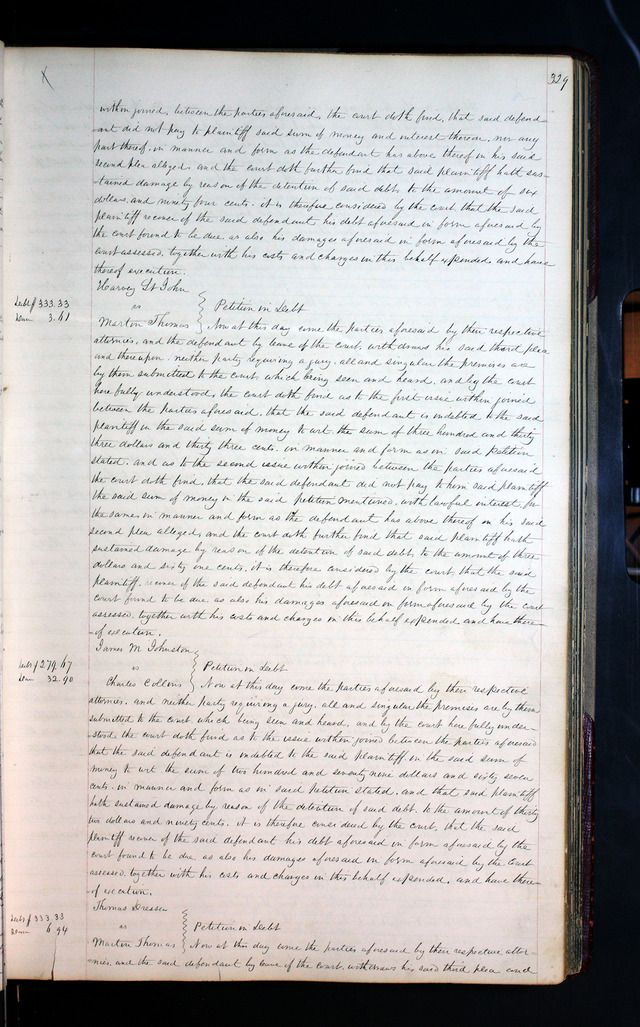 329
within joined, between the parties aforesaid, the court doth find, that said defend-
ant did not pay to plaintiff said sum of money and interest thereon, nor any
part thereof, in manner and form as the defendant has above thereof in his said
second plea alleged, and the court doth further find that said plaintiff hath sus-
tained damage by reason of the detention of said debt, to the amount of six
dollars and ninety four cents. it is therefore considered by the court, that the said
plaintiff recover of the said defendant his debt aforesaid in form aforesaid by
the court found to be due, as also his damages aforesaid in form aforesaid by the
court assessed, together with his costs and charges in this behalf expended, and have
thereof execution.
Harvey St John
vs
Petition in Debt
Debt $333.33
Dam 3.61
Marton Thomas
Now at this day come the parties aforesaid by their respective
attornies, and the defendant by leave of the court, withdraws his said third plea
and thereupon, neither party requiring a jury, all and singular the premises are
by them submitted to the court, which being seen and heard, and by the court
here fully understood, the court doth find as to the first issue within joined
between the parties aforesaid, that the said defendant is indebted to the said
plaintiff in the said sum of money to wit the sum of three hundred and thirty
three dollars and thirty three cents, in manner and form as in said Petition
stated, and as to the second issue within joined between the parties aforesaid
the court doth find, that the said defendant did not pay to him said plaintiff
the said sum of money in the said petition mentioned, with lawful interest for
the same, in manner and form as the defendant has above thereof in his said
second plea alleged, and the court doth further find that said plaintiff hath
sustained damage by reason of the detention of said debt, to the amount of three
dollars and sixty one cents. it is therefore considered by the court, that the said
plaintiff, recover of the said defendant his debt aforesaid in form aforesaid by the
court found to be due, as also his damages aforesaid in form aforesaid by the court
assessed, together with his costs and charges in this behalf expended and have there-
of execution.
James M Johnston
vs
Petition in Debt
Debt $279.67
Dam 32.90
Charles Collins
Now at this day come the parties aforesaid by their respective
attornies, and neither party requiring a jury, all and singular the premises are by them
submitted to the court, which being seen and heard, and by the court here fully under-
stood, the court doth find as to the issue within joined between the parties aforesaid
that the said defendant is indebted to the said plaintiff in the said sum of
money to wit the sum of two hundred and seventy nine dollars and sixty seven
cents, in manner and form as in said petition stated, and that said plaintiff
hath sustained damage by reason of the detention of said debt, to the amount of thirty
two dollars and ninety cents. it is therefore considered by the court, that the said
plaintiff recover of the said defendant his debt aforesaid in form aforesaid by the
court found to be due, as also his damages aforesaid in form aforesaid by the Court
assessed, together with his costs and charges in this behalf expended, and have there-
of execution.
Thomas
vs
Petition in Debt
Debt $333.33
Dam 6.94
Marton Thomas
Now at this day come the parties aforesaid by their respective attor-
nies, and the said defendant by leave of the court, withdraws his said third plea and